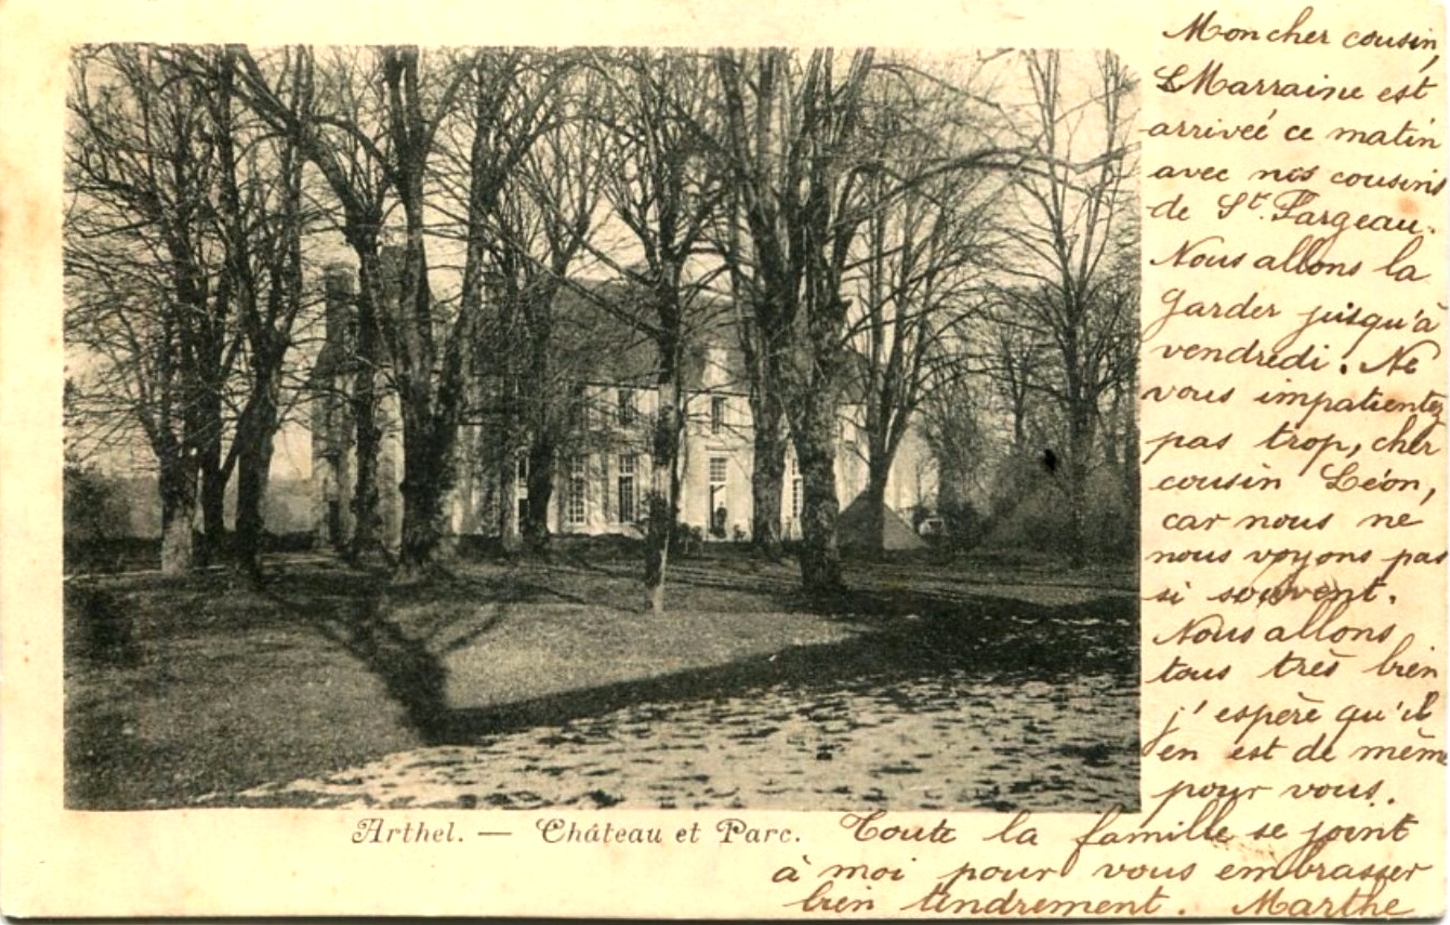 Mon cher cousin,
Marraine est
arriveé ce matin
avec nos cousins
de St. Fargeau.
Nous allons la
garder jusqu'à
vendredi. Ne
vous impatientez
pas trop, cher
cousin Léon,
car nous ne
nous voyons pas
si souvent.
Nous allons
tous très bien
j'espère qu'il
en est de même
pour vous.
Arthel. — Château et Parc.
Toute la famille se joint
à moi pour vous embrasser
bien tendrement. Marthe